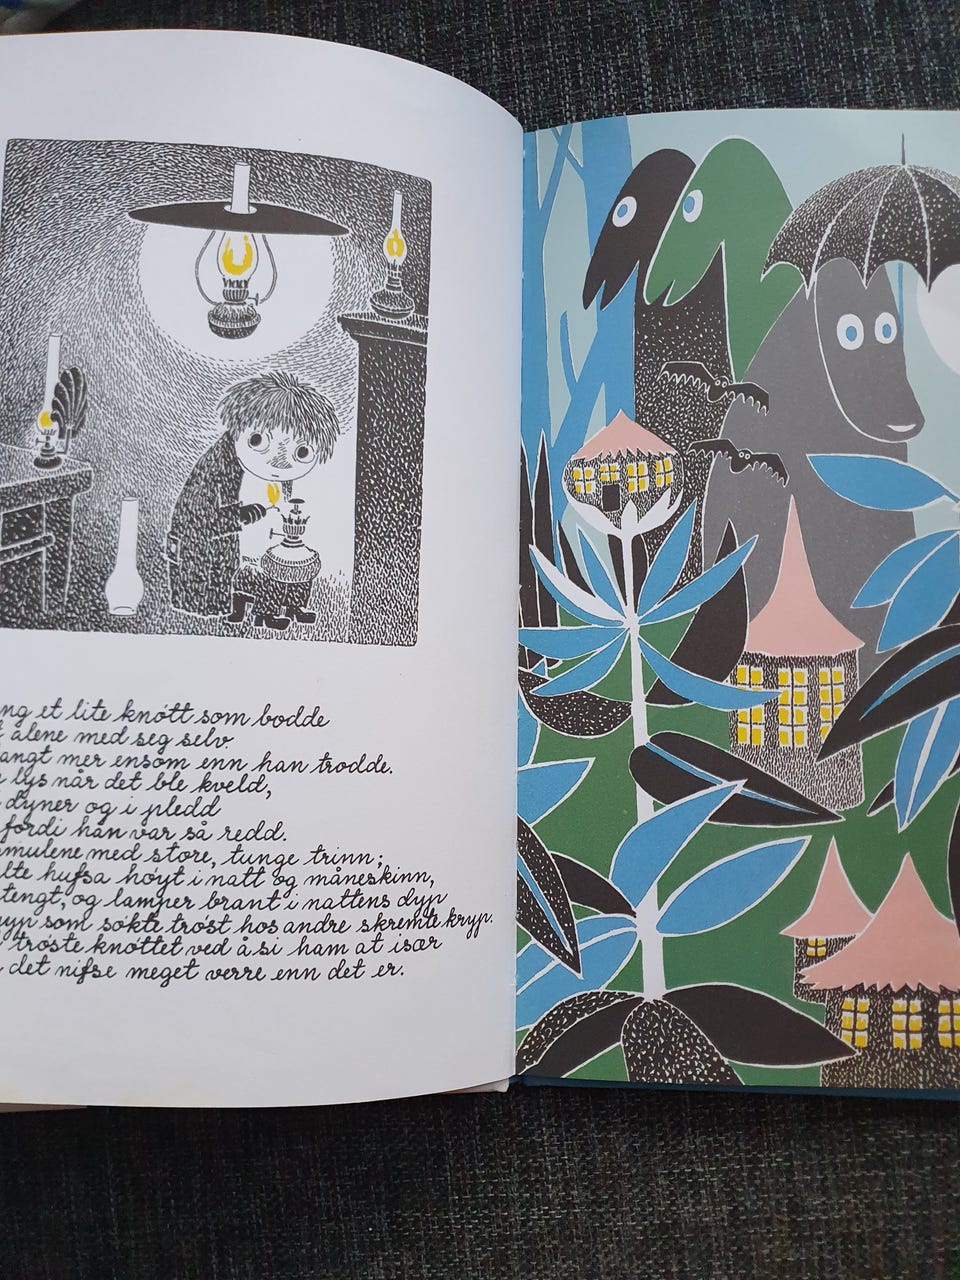 ng et lite knótt som bodde
alene med seg selv.
angt mer ensom enn han trodde.
lys når det ble kveld,
dyner og i pledd
fordi han var så redd.
mulene med store, tunge trinn;
lte hufsa høyt i natt og måneskinn,
tengt, og lamper brant i nattens dyp
kryp som søkte trøst hos andre skremte kryp.
trøste knøttet ved å si ham at især
det nifse meget verre enn det er.